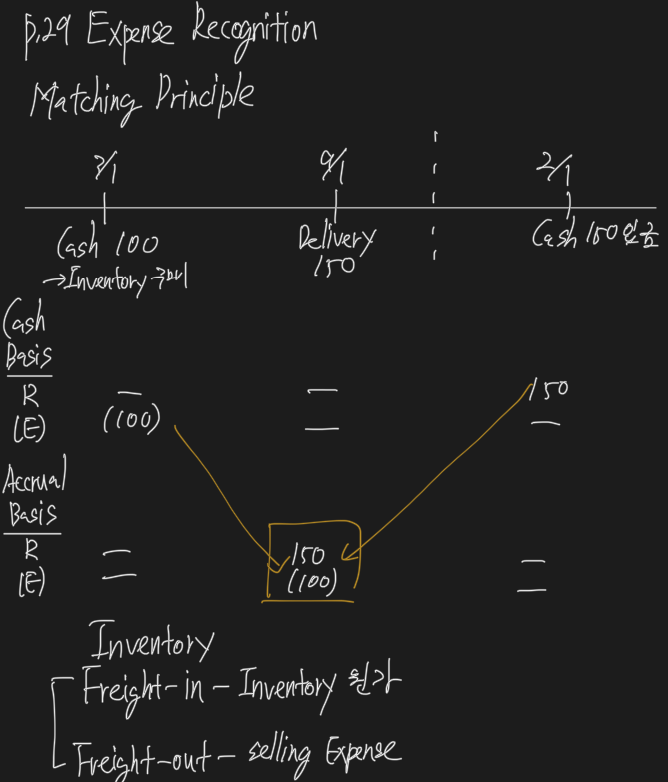 p.29 Expense Recognition
Matching Principle
3/1 9/1 2/1
Cash 100 Delivery Cash 150 입금
→Inventory 구매 150
Cash
Basis
R — — 150
(E) (100) — —
Accrual
Basis
R — 150 —
(E) — (100) —
Inventory
Freight-in - Inventory 원가
Freight-out - selling Expense